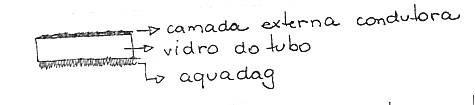 camada externa condutora
vidro do tubo
aquadag